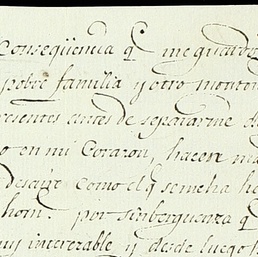 Conseqüencia q.^e me guardo
pobre familia y otro monton
presentes antes de separarme d
o en mi Corazon, hacen m
desaire como el q.^e se me ha he
hom.^e por sinberguenza q.^e
uy intererable y desde luego